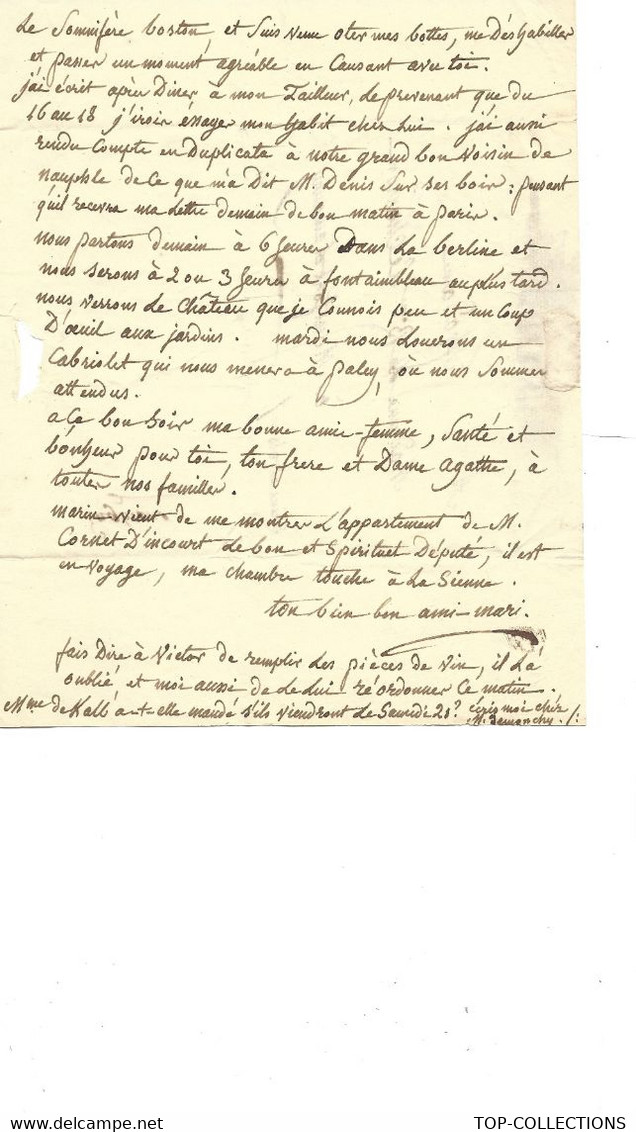 Le Somnifère boston et suis venu oter mes bottes, me Déshabiller
et passer un moment agréable en Causant avec toi.
j'ai écrit après Diner à mon Tailleur, le prevenant que du
16 au 18 j'irois éssayer mon habit chez lui. j'ai aussi
rendu Compte en Duplicata à notre grand bon voisin de
nauphle de Ce que m'a Dit M. Denis Sur ses bois: pensant
qu'il recevra ma Lettre demain de bon matin à paris.
nous partons demain à 6 heures Dans La berline et
nous serons à 2 ou 3 heures à fontaimbleau au plus tard.
nous verrons Le Château que je Connois peu et un Coup
D'œuil aux jardins. mardi nous Louerons un
Cabriolet qui nous menera à paley, où nous Sommes
attendus.
a Ça bon soir ma bonne amie-femme, Santé et
bonheur pour toi, ton frere et Dame Agathe, à
toutes nos familles.
marin vient de me montrer L'appartement de M.
Cornet D'incourt Le bon et Spirituel Député, il est
en voyage, ma chambre touche à La Sienne.
ton bien bon ami-mari.
fais Dire à Victor de remplir Les pièces de vin, il L'a
oublié, et moi aussi de Le Lui ré'ordonner Ce matin.
Mme de Kalb a-t-elle mandé s'ils viendront Le Samedi 21? écris moi chéz
M. Demanchy ./:
TOP-COLLECTIONS